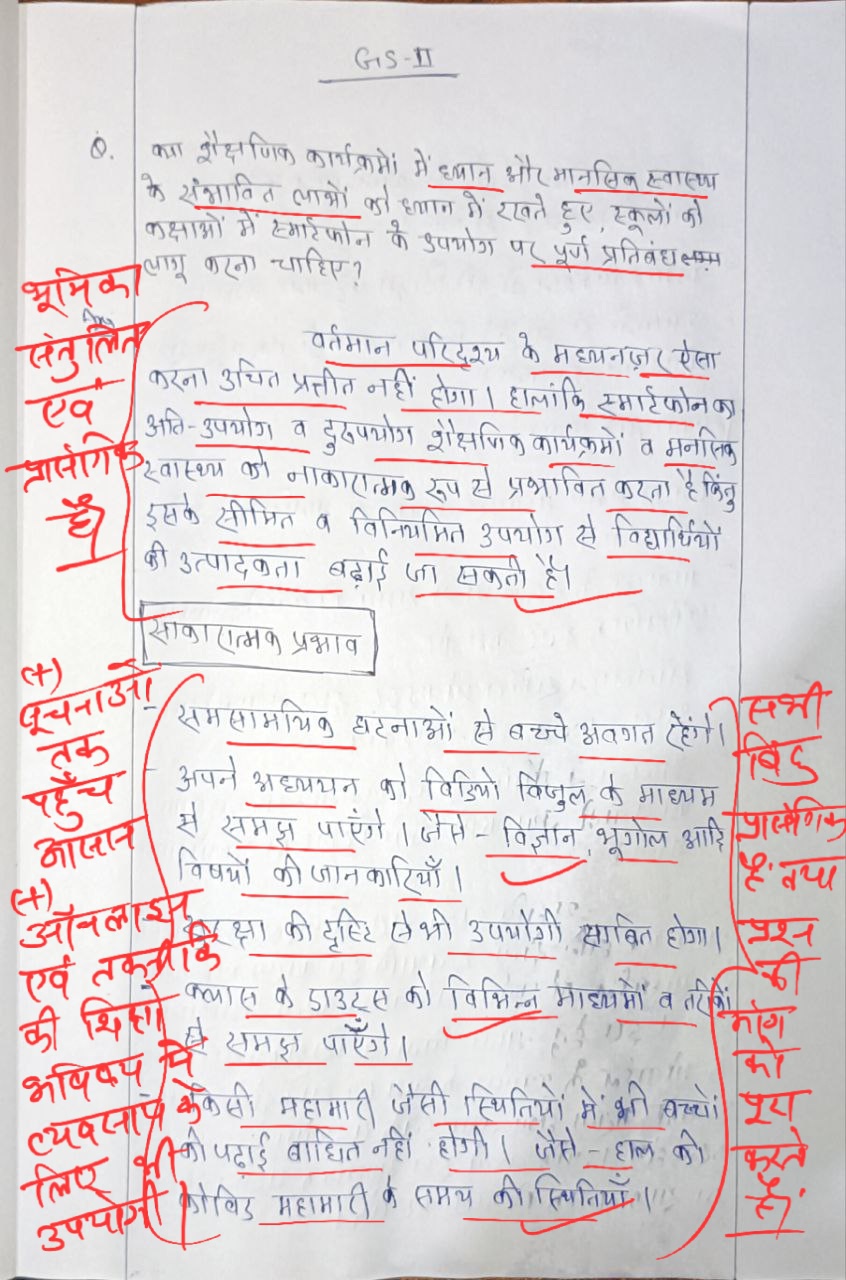 GS-II
Q. क्या शैक्षणिक कार्यक्रमों में ध्यान और मानसिक स्वास्थ्य
के संभावित लाभों को ध्यान में रखते हुए, स्कूलों को
कक्षाओं में स्मार्टफोन के उपयोग पर पूर्ण प्रतिबंध
लागू करना चाहिए?
भूमिका
संतुलित
एवं
प्रासंगिक
है।
वर्तमान परिदृश्य के मध्यनज़र ऐसा
करना उचित प्रतीत नहीं होगा। हालांकि स्मार्टफोन का
अति-उपयोग व दुरुपयोग शैक्षणिक कार्यक्रमों व मनसिक
स्वास्थ्य को नाकारात्मक रूप से प्रभावित करता है किंतु
इसके सीमित व विनियमित उपयोग से विद्यार्थियों
की उत्पादकता बढ़ाई जा सकती है।
साकारात्मक प्रभाव
(+)
सूचनाओं
तक
पहुँच
आसान
(+)
ऑनलाइन
एवं तकनीकि
की शिक्षा
भविष्य में
व्यवसाय के
लिए भी
उपयोगी
- समसामयिक घटनाओं से बच्चे अवगत रहेंगे।
- अपने अध्ययन को विडियो विजुल के माध्यम
से समझ पाएँगे। जैसे - विज्ञान, भूगोल आदि
विषयों की जानकारियाँ।
सुरक्षा की दृष्टि से भी उपयोगी साबित होगा।
क्लास के डाउट्स को विभिन्न माध्यमों व तरीकों
से समझ पाएँगे।
किसी महामारी जैसी स्थितियों में भी बच्चों
की पढ़ाई बाधित नहीं होगी। जैसे - हाल की
कोविड महामारी के समय की स्थितियाँ।
सभी
बिंदु
प्रासंगिक
हैं तथा
प्रश्न
की
मांग
को
पूरा
करते
हैं।